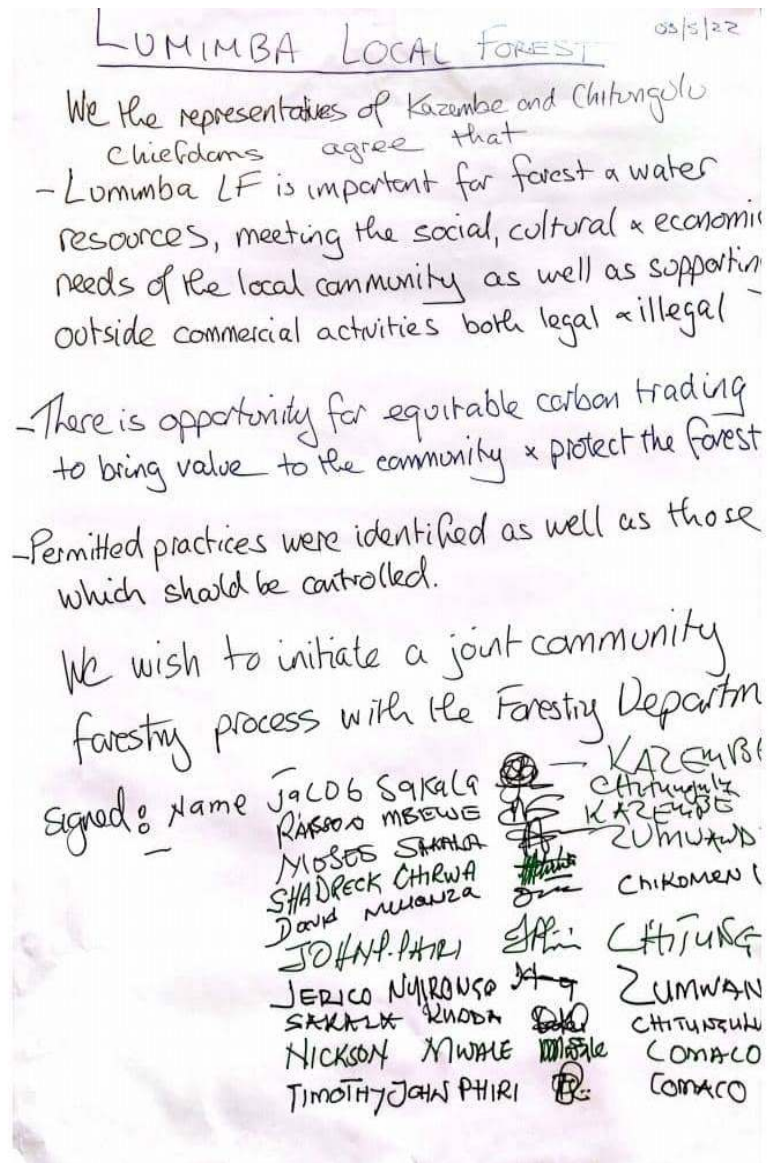 LUMIMBA LOCAL FOREST 03/5/22
We the representatives of Kazembe and Chitungulu
Chiefdoms agree that
- Lumimba LF is important for forest & water
resources, meeting the social, cultural & economi
needs of the local community as well as supportin
outside commercial activities both legal & illegal
- There is opportunity for equitable carbon trading
to bring value to the community & protect the forest
- Permitted practices were identified as well as those
which should be controlled.
We wish to initiate a joint community
forestry process with the Forestry Departm
signed: Name Jacob Sakala — KAZEMBE
MBEWE Chitungulu
MOSES SAKALA KAZEMBE
SHADRECK CHIRWA ZUMWAND
David Mwanza CHIKOMENI
JOHN P. PHIRI CHITUNG
JERICO NYIRONGO ZUMWAN
SAKALA KHODA CHITUNGULU
NICKSON MWALE Mwale COMACO
TIMOTHY JOHN PHIRI COMACO